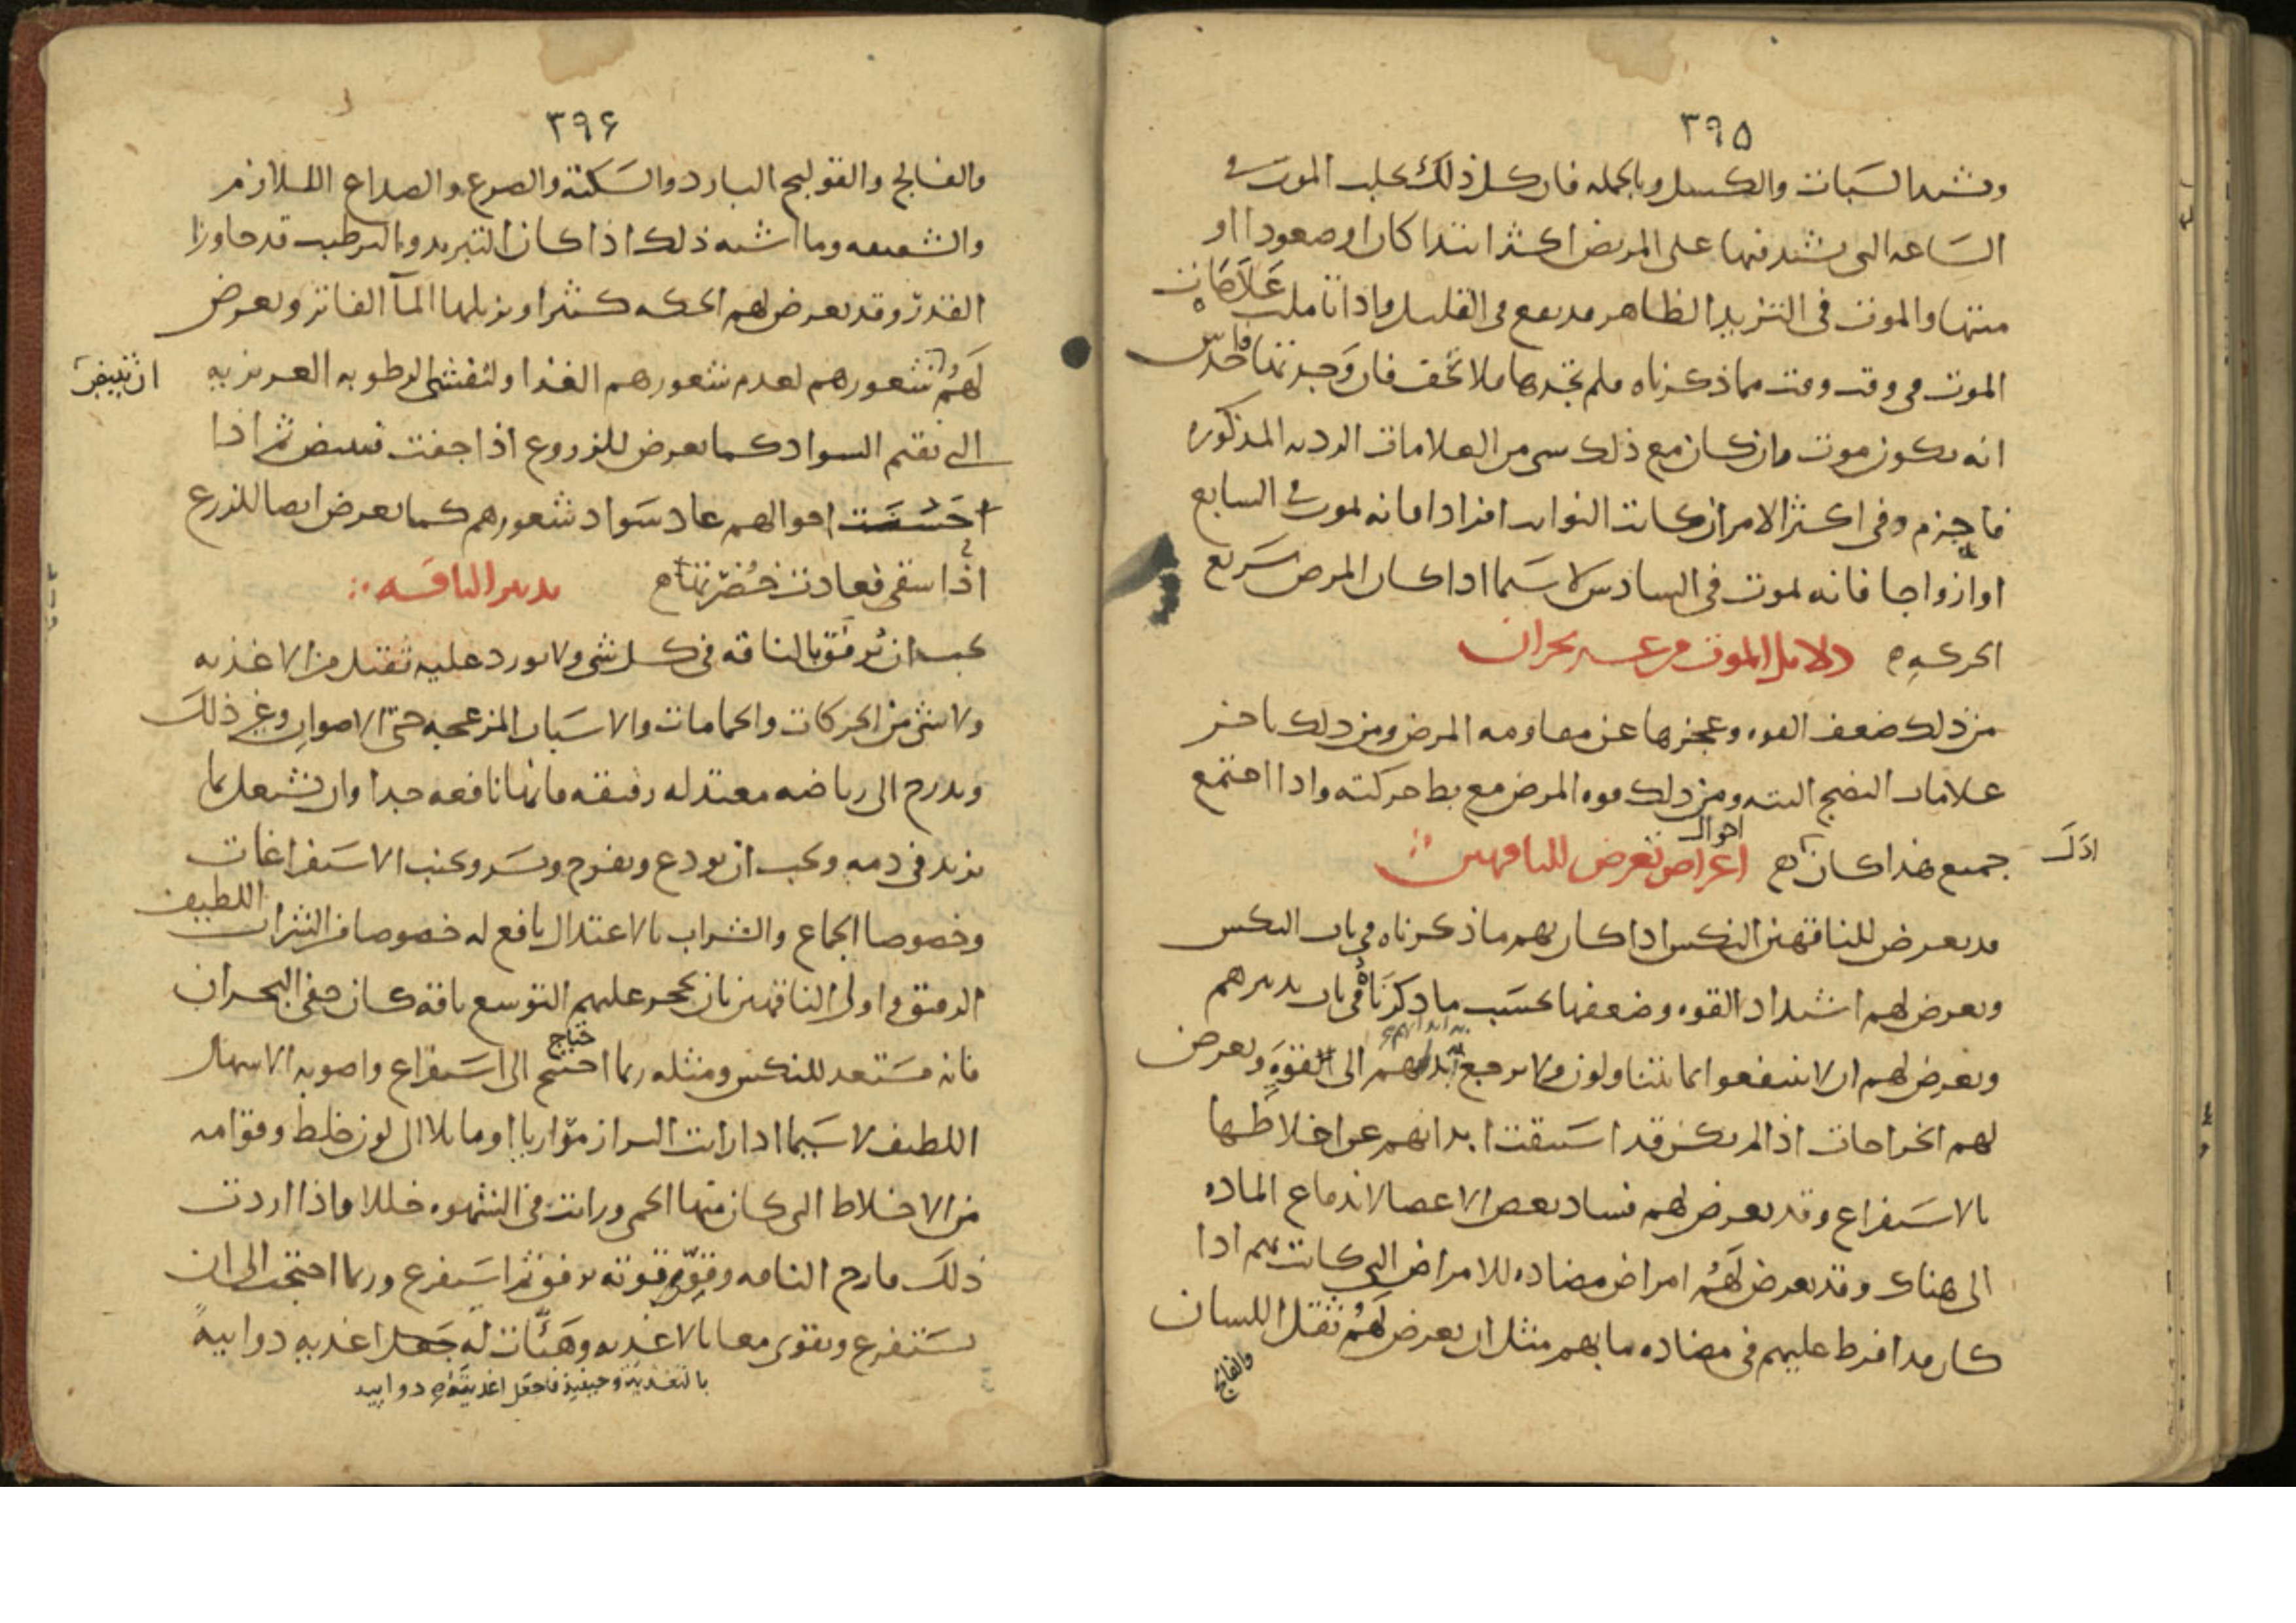 ٣٩٥
ويشتد السبات والكسل وبالجمله فان كل ذلك يجلب الموت في
الساعه التي يشتد فيها على المريض اكثر ابتداء كان او صعودا او
منتها والموت في التزيد الظاهر قد يقع في القليل واذا تاملت علامات
الموت في وقت وقت مما ذكرناه فلم تجدها فلا تخف فان وجدتها فاحدس
انه يكون موت وان كان مع ذلك شي من العلامات الرديه المذكوره
فاجزم وفي اكثر الامر ان كانت النوايب افرادا فانه يموت في السابع
او ازواجا فانه يموت في السادس لا سيما اذا كان المرض سريع
الحركه دلايل الموت من غير بحران
من ذلك ضعف القوه وعجزها عن مقاومه المرض ومن ذلك تاخر
علامات النضج البته ومن ذلك قوه المرض مع بط حركته واذا اجتمع
جميع هذا كان اعراض تعرض للناقهين
احوال
قد يعرض للناقهين النكس اذا كان بهم ما ذكرناه في باب النكس
ويعرض لهم اشتداد القوه وضعفها بحسب ما ذكرناه في باب تدبيرهم
ويعرض لهم ان لا ينتفعوا بما يتناولون ولا يرجع بدنهم الى القوه ويعرض
لهم الخراجات اذا لم يكن قد استنقت ابدانهم عن اخلاطها
بالاستفراغ وقد يعرض لهم فساد بعض الاعضا لاندفاع الماده
الى هناك وقد يعرض لهم امراض مضاده للامراض التي كانت بهم اذا
كان قد افرط عليهم في مضاده ما بهم مثل ان يعرض لهم ثقل اللسان
والفالج
٣٩۶
والفالج والقولنج البارد والسكته والصرع والصداع اللازم
والشقيقه وما اشبه ذلك اذا كان التبريد والترطيب قد جاوزا
القدر وقد يعرض لهم الحكه كثيرا ويزيلها المآ الفاتر ويعرض
لهم شعورهم لعدم شعورهم الغذا ولتفشي الرطوبه الغريزيه
ان تبيض
التي تقيم السواد كما يعرض للزروع اذا جفت تبيض ثم اذا
احسنت احوالهم عاد سواد شعورهم كما يعرض ايضا للزرع
اذا سقي فعادت خضرتها تدبير الناقه
يجب ان يرفق بالناقه في كل شي ولا يورد عليه ثقيل من الاغذيه
ولا شي من الحركات والحمامات والاسباب المزعجه حتى الاصوات وغير ذلك
ويدرج الى رياضه معتدله رفيقه فانها نافعه جدا وان يشتغل بما
يزيد في دمه ويجب ان يودع ويفرح ويسر ويجنب الاستفراغات
وخصوصا الجماع والشراب بالاعتدال نافع له خصوصا من الشراب اللطيف
الرقيق واولى الناقهين بان يحجر عليهم التوسع ناقه كان خفي البحران
فانه مستعد للنكس ومثله ربما احتيج الى استفراغ واصوبه الاسهال
اللطيف لا سيما اذا رايت البراز مراريا او مايلا الى لون خلط وقوامه
من الاخلاط التي كان منها الحمى ورايت في الشهوه خللا واذا اردت
ذلك فارح الناقه وقو قوته برفق ثم استفرغ وربما احتجت الى ان
تستفرغ وتقوي معا بالاغذيه وهيات له جعل اغذيه دواييه
بالتغذية وحينئذ فاجعل اغذيته دواييه